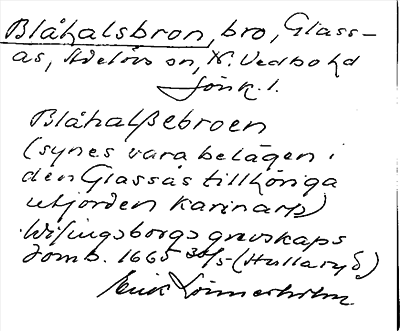 Blåhalsbron, bro, Glass-
ås, Adelövs sn, N. Vedbo hd
Jönk. l.
Blåhalßebroen
(synes vara belägen i
den Glassås tillhöriga
utjorden Karinarp)
Wisingsborgs grevskaps
Jomb. 1665 30/5 (Hullaryd)
Erik Lönnerholm.